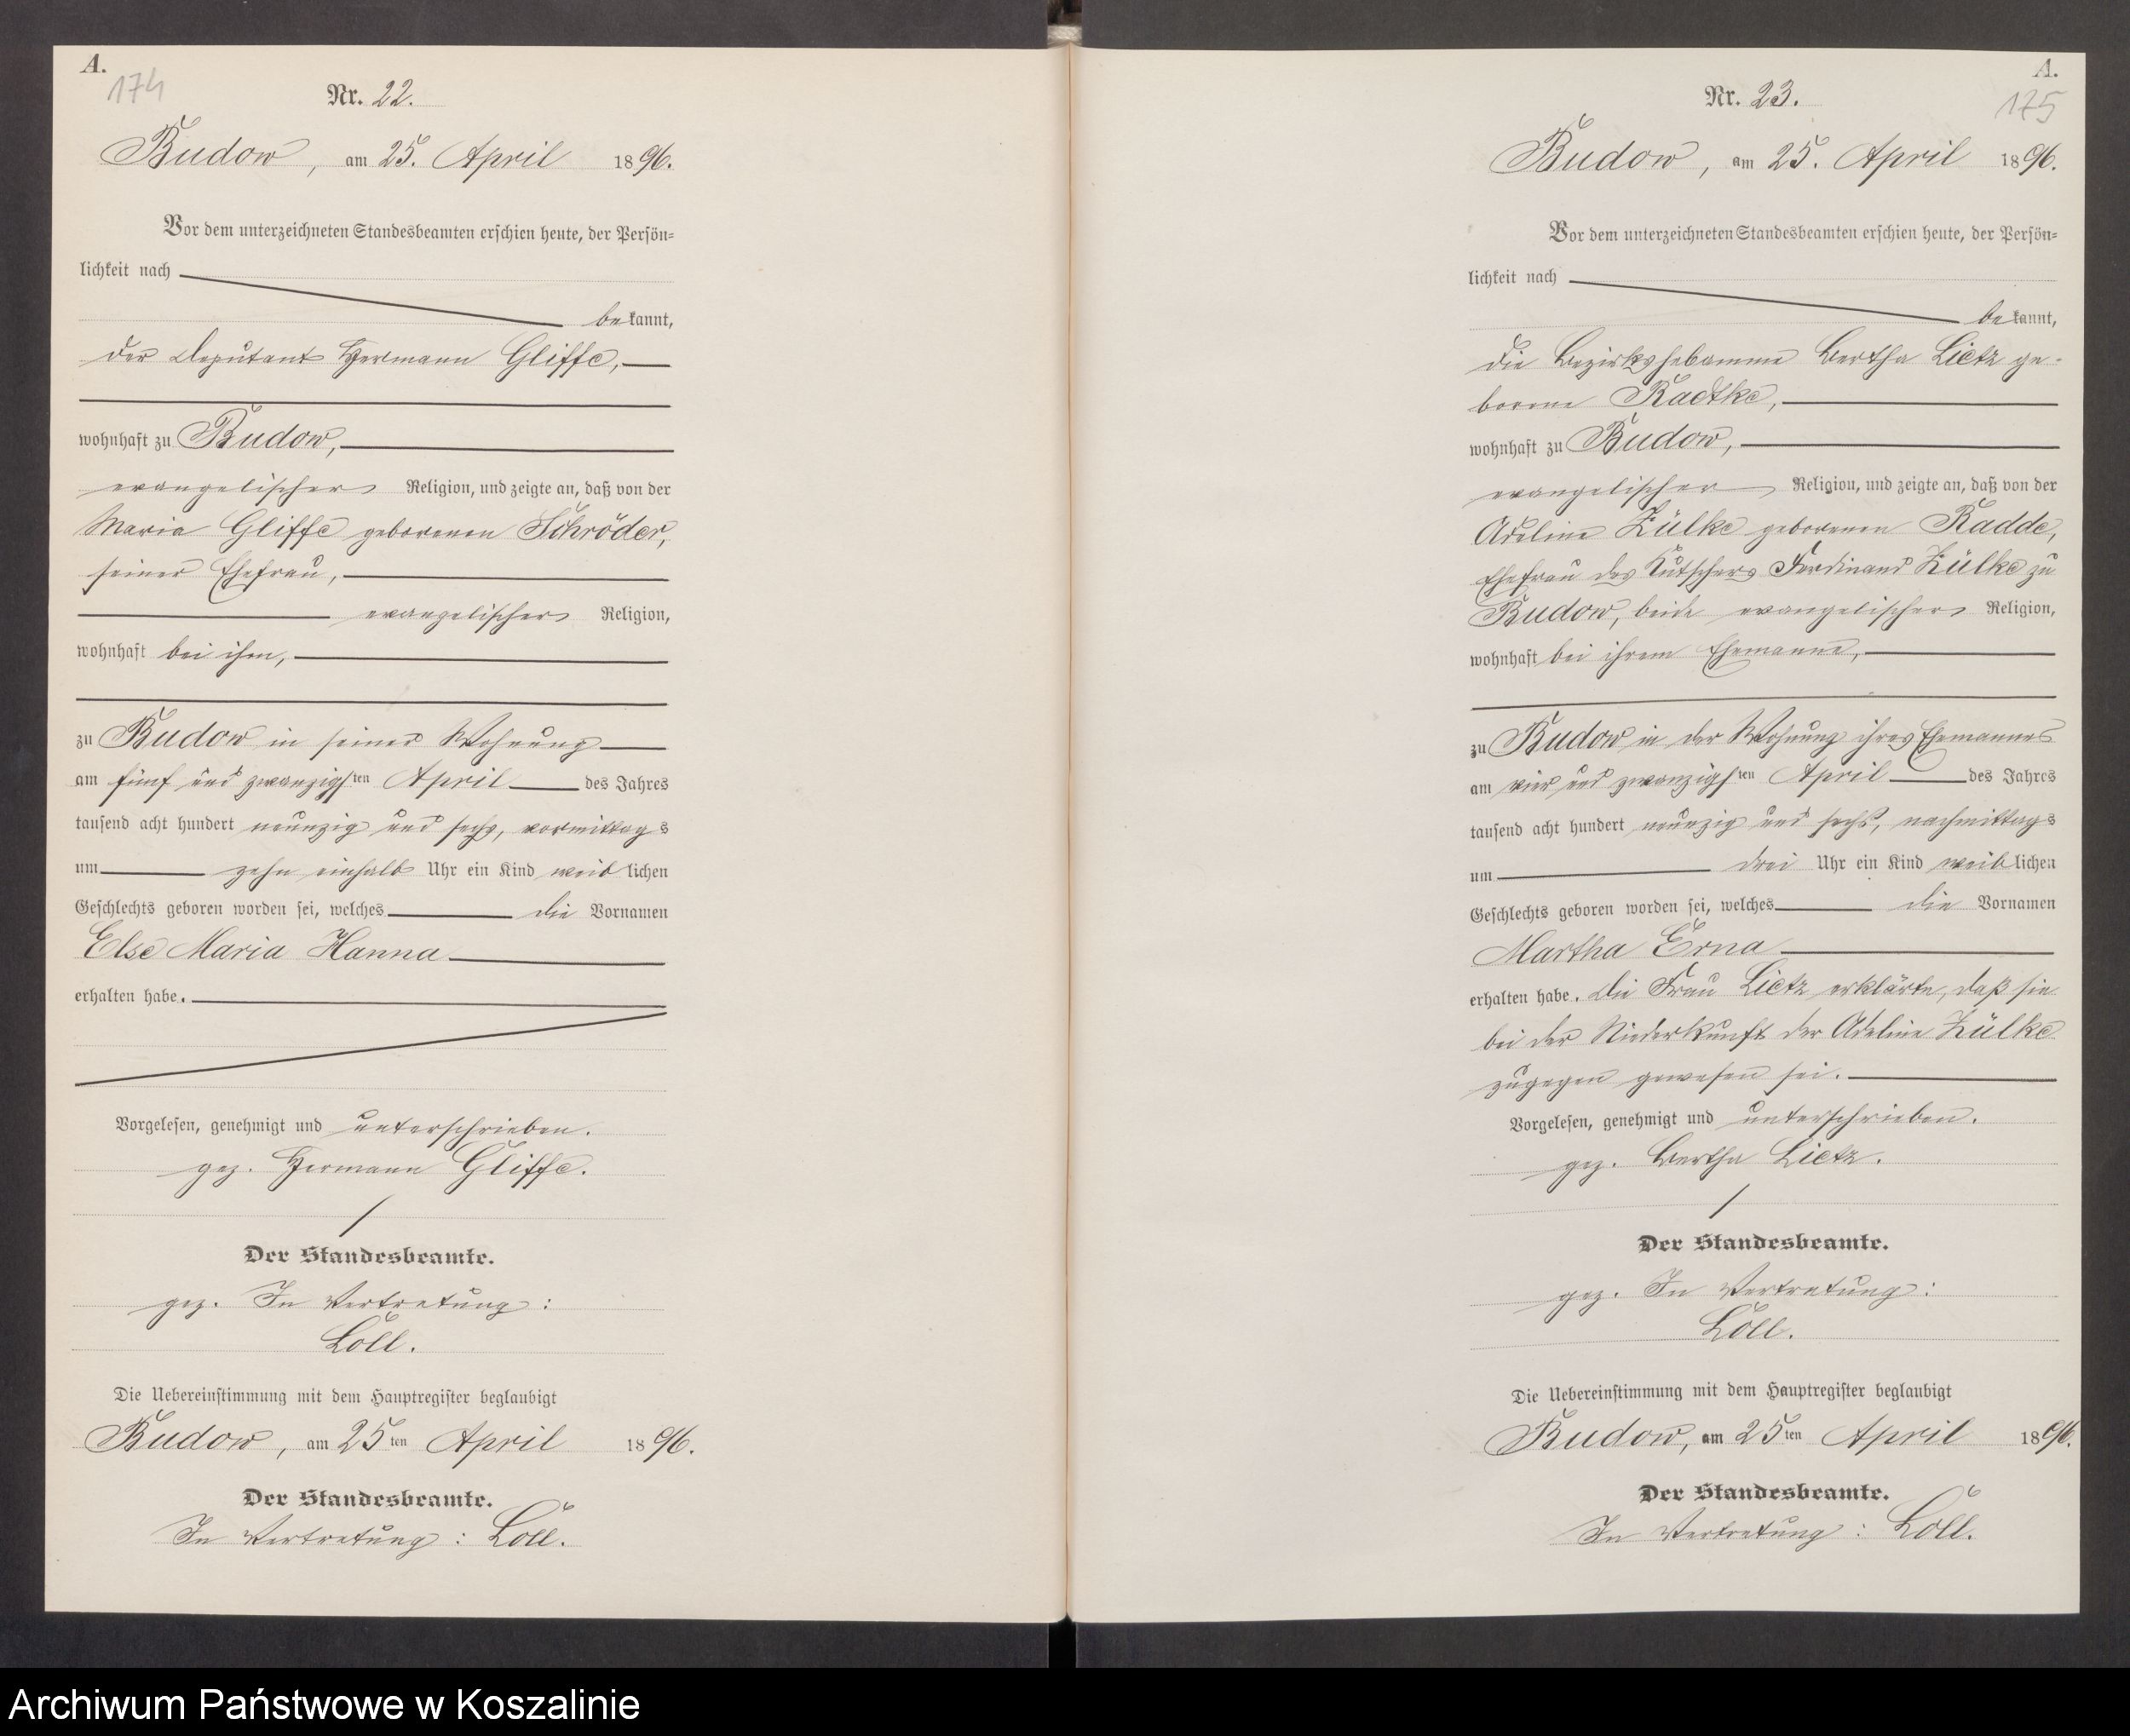 A.
174
Nr. 22.
Budow, am 25. April 1896.
Vor dem unterzeichneten Standesbeamten erschien heute, der Persön=
lichkeit nach
bekannt,
der Deputant Hermann Gliffe,
wohnhaft zu Budow,
evangelischer Religion, und zeigte an, daß von der
Maria Gliffe geborenen Schröder,
seiner Ehefrau,
evangelischer Religion,
wohnhaft bei ihm,
zu Budow in seiner Wohnung
am fünf und zwanzigsten April des Jahres
tausend acht hundert neunzig und sechs, vormittags
um zehn einhalb Uhr ein Kind weiblichen
Geschlechts geboren worden sei, welches die Vornamen
Else Maria Hanna
erhalten habe.
Vorgelesen, genehmigt und unterschrieben.
gez. Hermann Gliffe.
Der Standesbeamte.
gez. In Vertretung:
Loll.
Die Uebereinstimmung mit dem Hauptregister beglaubigt
Budow, am 25ten April 1896.
Der Standesbeamte.
In Vertretung: Loll.
A.
175
Nr. 23.
Budow, am 25. April 1896.
Vor dem unterzeichneten Standesbeamten erschien heute, der Persön=
lichkeit nach
bekannt,
die Bezirkshebamme Bertha Lietz ge-
borene Radtke,
wohnhaft zu Budow,
evangelischer Religion, und zeigte an, daß von der
Adeline Zülke geborenen Radde,
Ehefrau des Kutschers Ferdinand Zülke zu
Budow, beide evangelischer Religion,
wohnhaft bei ihrem Ehemanne,
zu Budow in der Wohnung ihres Ehemannes
am vier und zwanzigsten April des Jahres
tausend acht hundert neunzig und sechs, nachmittags
um drei Uhr ein Kind weiblichen
Geschlechts geboren worden sei, welches die Vornamen
Martha Erna
erhalten habe. Die Frau Lietz erklärte, daß sie
bei der Niederkunft der Adeline Zülke
zugegen gewesen sei.
Vorgelesen, genehmigt und unterschrieben.
gez. Bertha Lietz.
Der Standesbeamte.
gez. In Vertretung:
Loll.
Die Uebereinstimmung mit dem Hauptregister beglaubigt
Budow, am 25ten April 1896.
Der Standesbeamte.
In Vertretung: Loll.
Archiwum Państwowe w Koszalinie